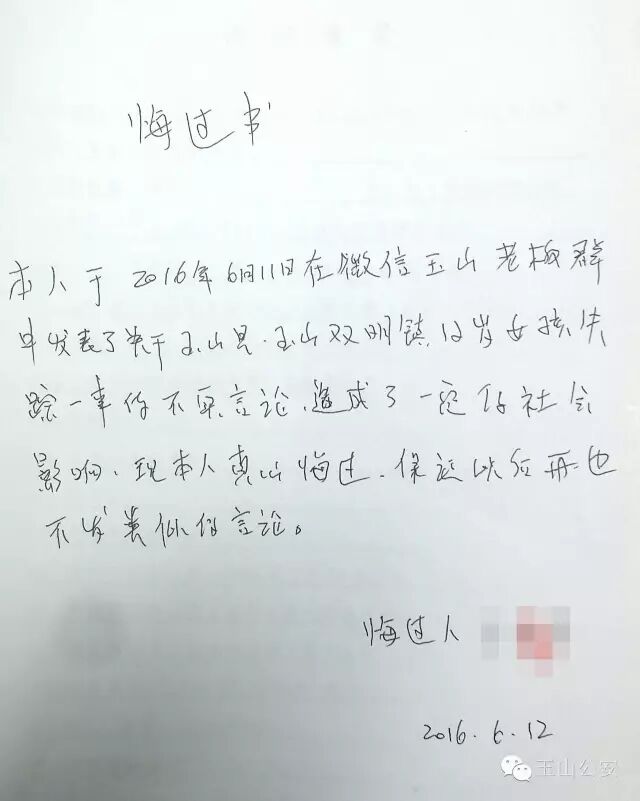 悔过书
本人于2016年6月11日在微信玉山老板群
中发表了关于玉山县.玉山双明镇12岁女孩失
踪一事的不实言论,造成了一定的社会
影响、现本人真心悔过.保证以后再也
不发类似的言论。
悔过人
2016.6.12
玉山公安